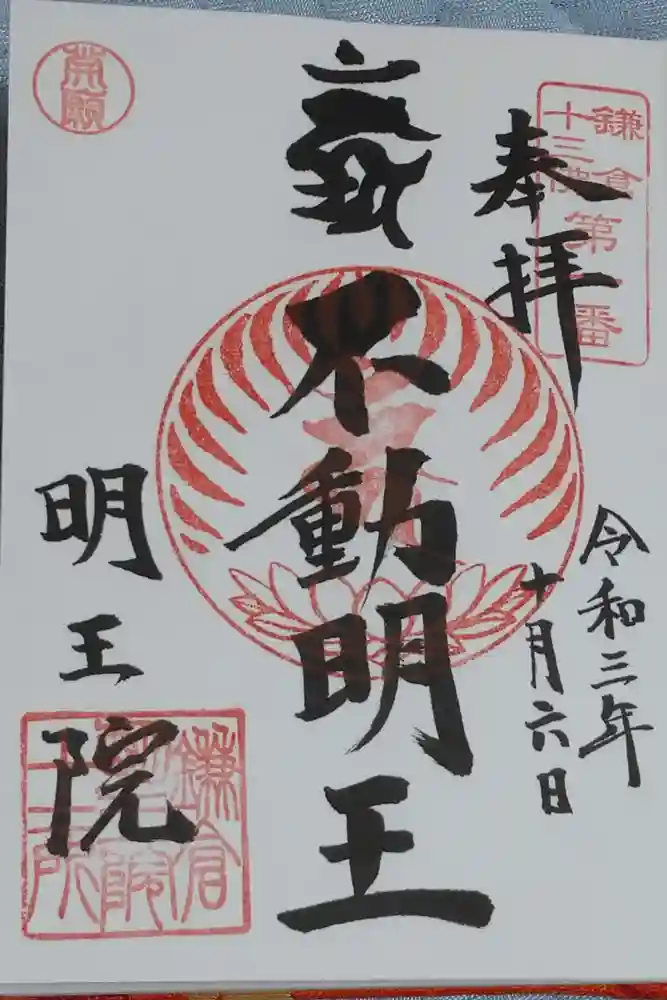 奉拝
鎌倉
十三佛
第一番
令和三年
十月六日
不動明王
明王院
鎌倉
十二所